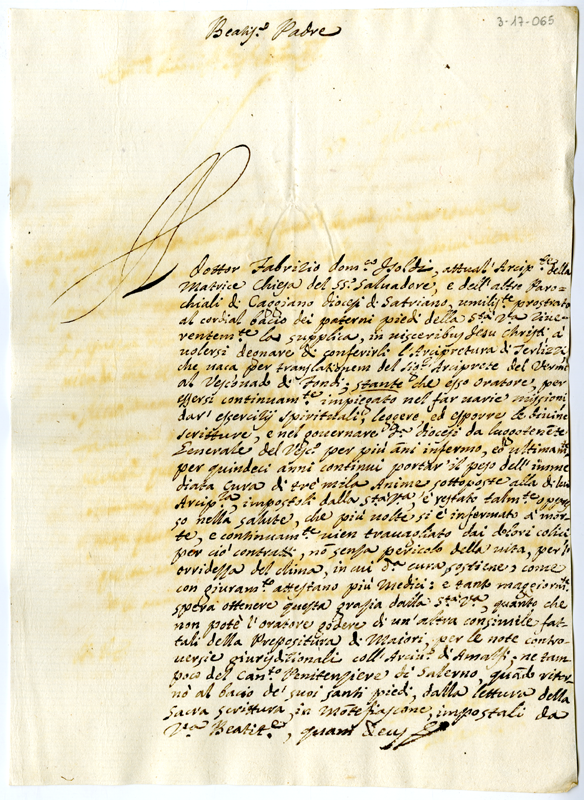 3-17-065
Beatis.o Padre
Il Dottor Fabrizio Dom.co Isoldi, attual' Arcip.te della
Matrice Chiesa del SS.o Salvadore, e dell'altre Paroc-
chiali di Caggiano Diocesi di Satriano, umilis.te prostrato
al cordial bacio dei paterni piedi della S.tà V.ra rive-
rentem.te la supplica, in visceribus Jesu Christi à
volersi degnare di conferirli l'Arcipretura di Terlizzi
che vaca per translationem del Sig.r Arciprete del Vermi
al Vescovado di Fondi; stante che esso oratore, per
essersi continuam.te impiegato nel far varie missioni
dar' essercitij spirituali, leggere, ed esporre le divine
scritture, e nel governare d.a Diocesi da luogotenẽte
Generale del Vesc.o per più ãni infermo, ed ultimam.te
per quindeci anni continui portar' il peso dell'imme
diata cura di trè mila Anime sottoposte alla di lui
Arcip.ra, impostoli dalla S.tà V.ra, è restato talm.te oppres
so nella salute, che più volte si è infermato à mor-
te, e continuam.te vien travagliato dai dolori colici
per ciò contratti, nõ senza pericolo della vita, per l'
orridezza del clima, in cui d.a cura sostiene; come
con giuram.to attestano più Medici: e tanto maggiorm.te
spera ottenere questa grazia dalla S.tà V.ra, quãto che
non potè l'oratore godere di un'altra consimile fat-
tali della Prepositura di Maiori, per le note contro-
versie giurisdizionali coll'Arciv.o di Amalfi; ne tam
poco del Can.to Penitenziere di Salerno, quãdo ritor
nò al bacio de' suoi santi piedi, dalla lettura della
sacra scrittura, in Mõtefiascone, impostali da
V.ra Beatit.e, quam Deus